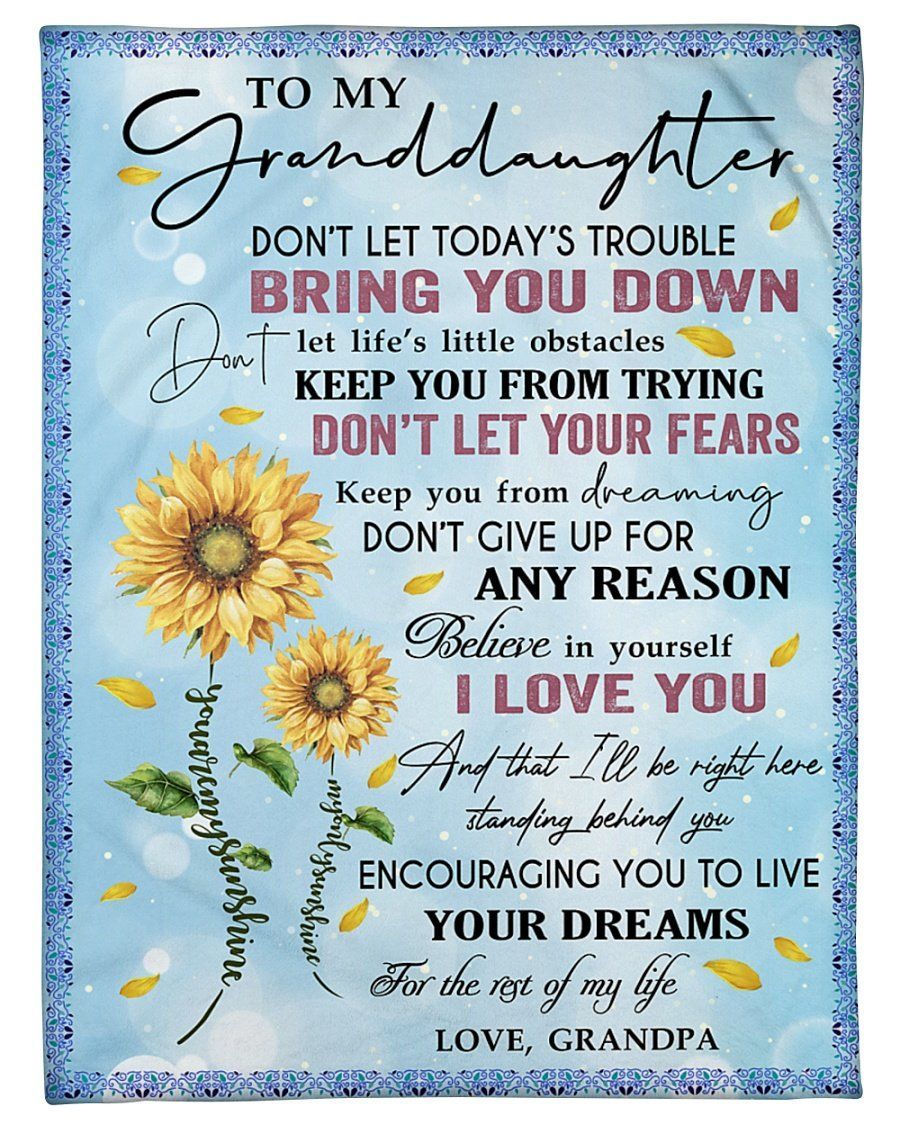 TO MY
Granddaughter
DON'T LET TODAY'S TROUBLE
BRING YOU DOWN
Don't let life's little obstacles
KEEP YOU FROM TRYING
DON'T LET YOUR FEARS
Keep you from dreaming
DON'T GIVE UP FOR
ANY REASON
Believe in yourself
I LOVE YOU
And that I'll be right here
standing behind you
ENCOURAGING YOU TO LIVE
YOUR DREAMS
For the rest of my life
LOVE, GRANDPA
you are my sunshine
my only sunshine